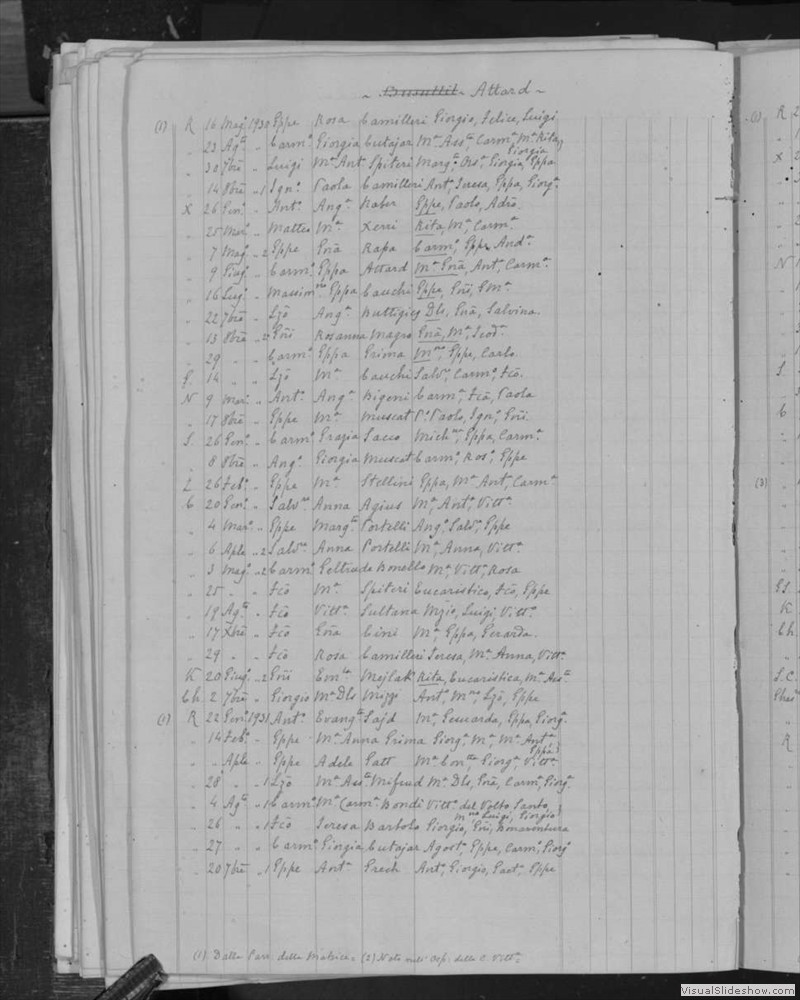 ~ Busuttil Attard ~
(1) R 16 Magº 1930 Eppe Rosa Camilleri Giorgio, Felice, Luigi
„ 23 Agto „ Carmº Giorgia Cutajar Mª Assta Carmª Mª Rita, Giorgia
„ 30 7bre „ Luigi Mª Ant. Spiteri Margta Rosª Giorgia, Eppa
„ 14 8bre „ 1 Ignº Paola Camilleri Antª Teresa, Eppa, Giorgª
X 26 Genº „ Antº Angª Naber Eppe, Paolo, Adeo.
„ 25 Marº „ Matteo Mª Xerri Rita, Mª, Carmª
„ 7 Magº „ 2 Eppe Gnã Rapa Carmº, Eppe Andª
„ 9 Giugº „ Carmº Eppa Attard Mª Gnã, Ant., Carmª
„ 16 Lugº „ Massimno Eppa Cauchi Eppe, Gñi, Emª
„ 22 7bre „ Ljõ Angª Buttigieg Dls, Gnã, Salvina.
„ 13 8bre „ 2 Gñi Rosanna Magro Gnã, Mª, Teodª
„ 29 „ „ Carmº Eppa Grima Mno, Eppe, Carlo.
G. 14 „ „ Ljõ Mª Cauchi Salvº, Carmº, Fcõ.
N 9 Marº „ Antº Angª Bigeni Carmª, Fcã, Paola
„ 17 8bre „ Eppe Mª Muscat Pº Paolo, Ignº, Gñi.
S. 26 Genº „ Carmº Grazia Sacco Michna, Eppa, Carmª
„ 8 8bre „ Angº Giorgia Muscat Carmº, Rosº, Eppe
Z 26 Febº „ Eppe Mª Stellini Eppa, Mª Ant, Carmª
C 20 Genº „ Salvre Anna Agius Mª, Antª, Vittª
„ 4 Marº „ Eppe Margta Portelli Angº Salvº, Eppe
„ 6 Aple „ 2 Salvre Anna Portelli Mª, Anna, Vittª
„ 3 Magº „ 2 Carmº Geltruda Bonello Mª, Vittª, Rosa
„ 25 „ „ Fcõ Mª Spiteri Eucaristico, Fcõ, Eppe
„ 19 Agto „ Fcõ Vittª Sultana Mzio, Luigi, Vittº
„ 17 Xbre „ Fcõ Gnã Cini Mª, Eppa, Gerarda.
„ 29 „ „ Fcõ Rosa Camilleri Teresa, Mª Anna, Vittª
K 20 Giugº „ 2 Gñi Emla Mejlak Rita, Eucaristica, Mª Assta
Ch 2 7bre „ Giorgio Mª Dls Mizzi Antº, Mno, Ljõ, Eppe
(1) R 22 Genº 1931 Antº Evangta Sajd Mª, Gemarda, Eppa, Giorgª
„ 14 Febº „ Eppe Mª Anna Grima Giorgª Mª, Mª Antª
„ „ Aple „ Eppe Adele Gatt Mª Conta Giorgª, Vittª Eppa
„ 28 „ „ 1 Ljõ Mª Assta Mifsud Mª Dls, Gnã, Carmª, Giorgª
„ 4 Agto „ 1 Carmº Mª Carmª Bondi Vittª del Volto Santo,
„ 26 „ „ 1 Fcõ Teresa Bartolo Giorgio, Gñi, Bonaventura Mno Luigi, Giorgio
„ 27 „ „ Carmº Giorgia Cutajar Agostº Eppe, Carmº, Giorgº
„ 20 7bre „ 1 Eppe Antª Grech Antº, Giorgio, Gaetº, Eppe
(1) Dalla Parr. della Matrice. (2) Nato nell' Osp. della C. Vittª
(1) R 2
X 2
N
S.
C
(3)
GS
K
Ch
S.C.
R
VisualSlideshow.com